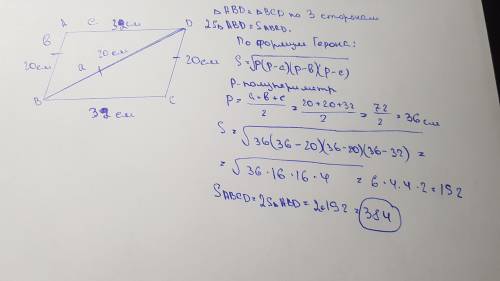 A c 32см D
в
20см 20см 20см
a
B C
32см
△ABD = △BCD по 3 сторонам
2S△ABD = SABCD.
По формуле Герона:
S = √p(p-a)(p-в)(p-c)
P-полупериметр
P = a+в+c/2 = 20+20+32/2 = 72/2 = 36 см
S = √36(36-20)(36-20)(36-32) =
= √36·16·16·4 = 6·4·4·2 = 192
SABCD = 2S△ABD = 2·192 = 384